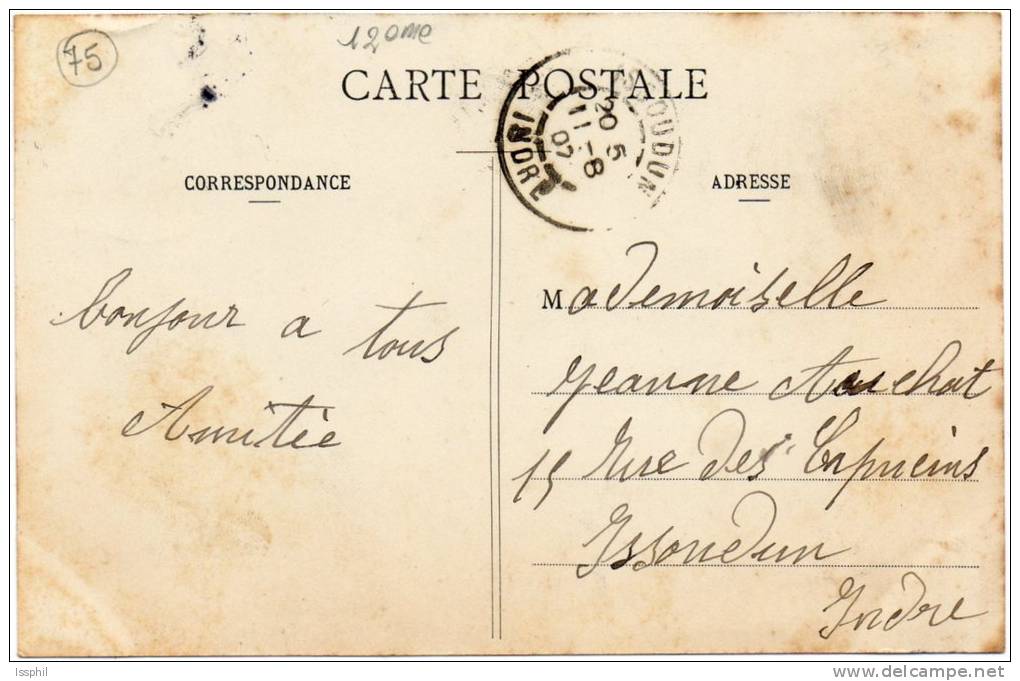 75
12 ème
CARTE POSTALE
ISSOUDUN
20 5
11 -8
07
INDRE
CORRESPONDANCE
ADRESSE
bonjour a tous
Amitiée
Mademoiselle
Jeanne Auchat
15 Rue des Capucins
Issoudun
Indre
Issphil
delcampe.net